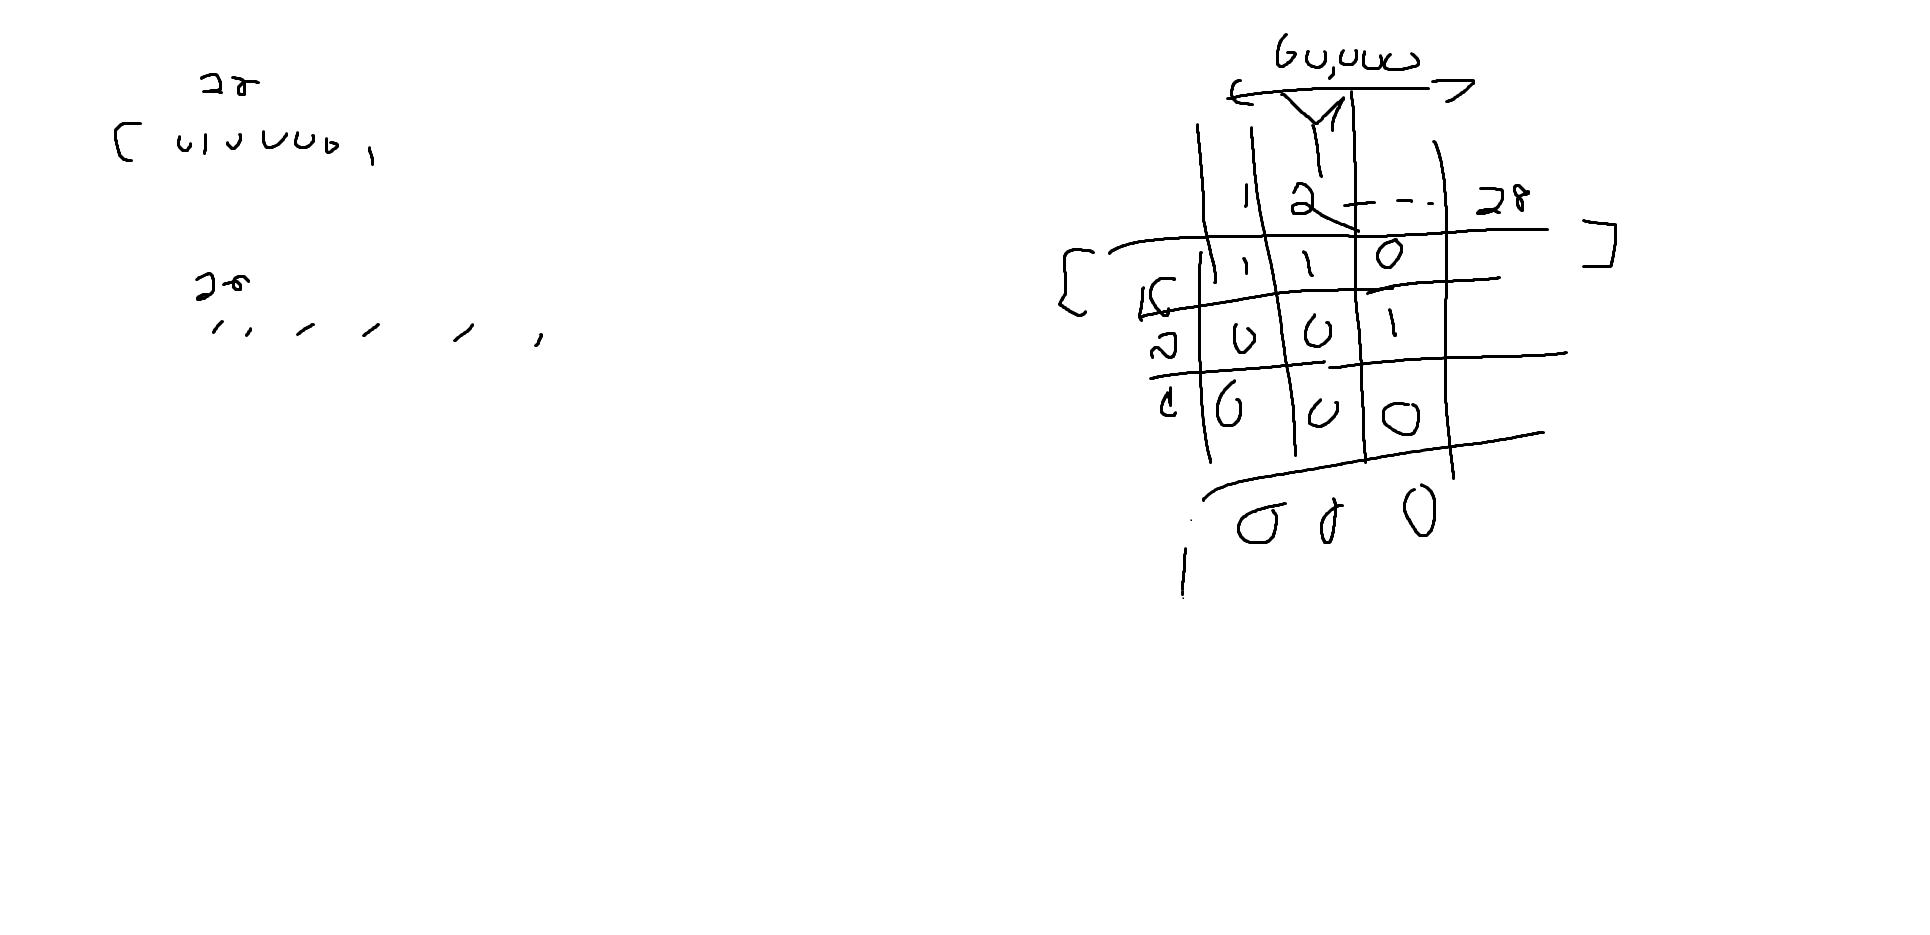 28
[ 010000,
28
, , , , , ,
60,000
1 2 - - - 28
[ 1 1 0 ]
2 0 0 1
0 0 0
0 0 0
1